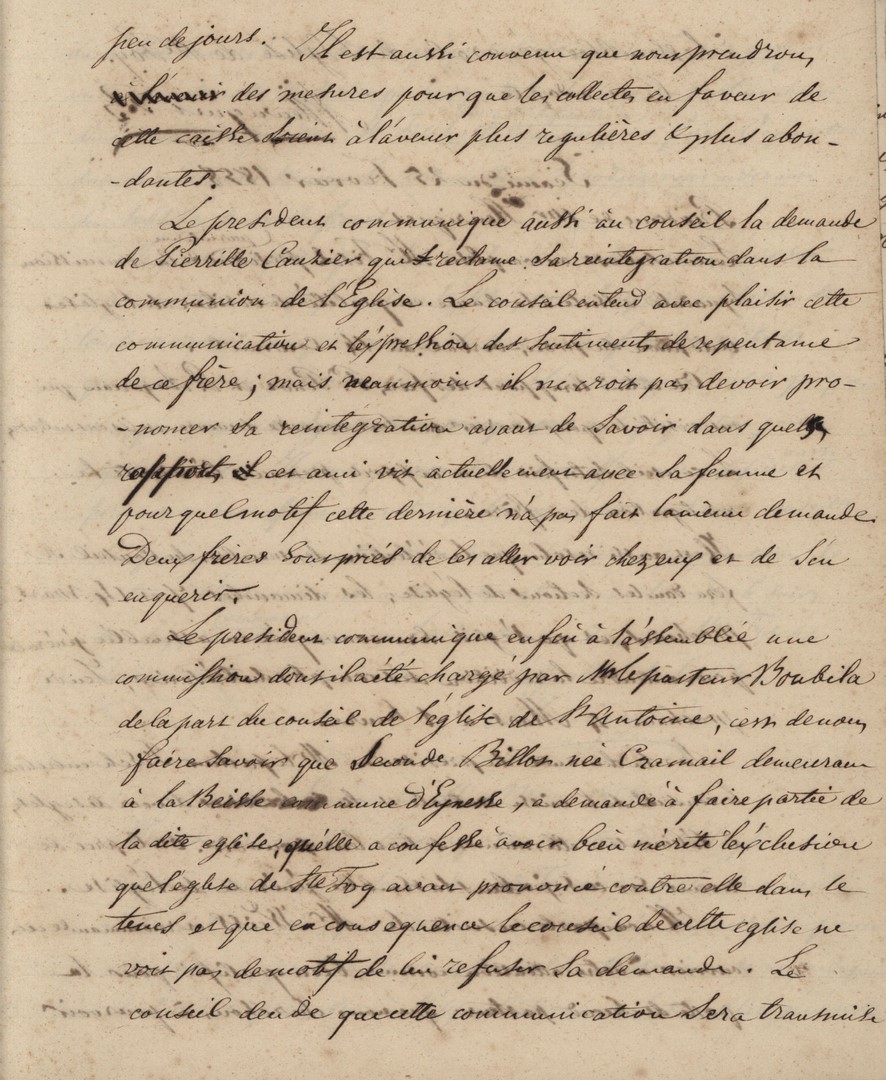 peu de jours. Il est aussi convenu que nous prendrons
des mesures pour que les collectes en faveur de
cette caisse soient à l'avenir plus regulières & plus abon-
-dantes.
Le president communique aussi au conseil la demande
de Pierrille Cauzier qui reclame sa reintegration dans la
communion de l'Eglise. Le conseil entend avec plaisir cette
communication et l'expression des sentiments de repentance
de ce frère ; mais neanmoins il ne croit pas devoir pro-
-noncer sa reintégration avant de savoir dans quels
rapports cet ami vit actuellement avec sa femme et
pour quel motif cette dernière n'a pas fait la même demande.
Deux frères sont priés de les aller voir chez eux et de s'en
enquerir.
Le president communique enfin à l'assemblée une
commission dont il a été chargé par Mr le pasteur Boubila
de la part du conseil de l'église de St Antoine, c'est de nous
faire savoir que Seconde Billot née Cramail demeurant
à la Beisse commune d'Eynesse, a demandé à faire partie de
la dite eglise, qu'elle a confessé avoir bien mérité l'exclusion
que l'église de Ste Foy avait prononcé contre elle dans le
tems et que en consequence le conseil de cette eglise ne
voit pas de motif de lui refuser sa demande. Le
conseil decide que cette communication sera transmise